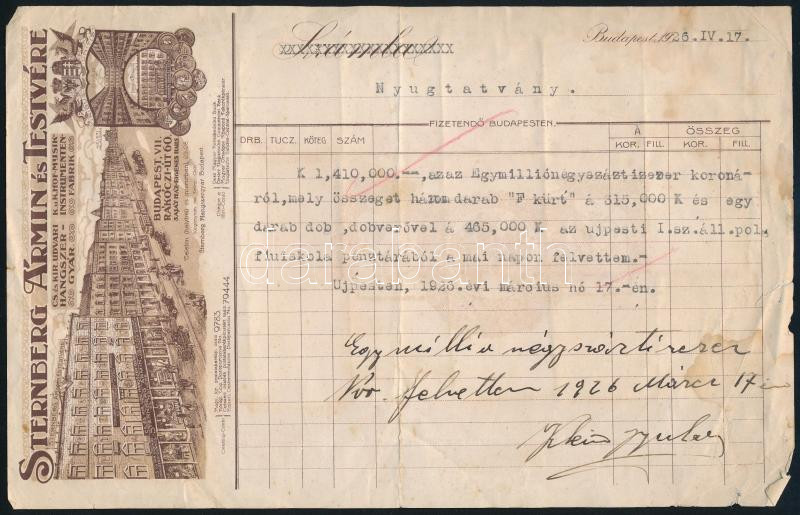 STERNBERG ÁRMIN ÉS TESTVÉRE
CS. & KIR. UDVARI
HANGSZER-
GYÁR
K. & K. HOF-MUSIK-
INSTRUMENTEN-
FABRIK
BUDAPEST, VII.
RÁKÓCZI-ÚT 60
Sternberg Hangszergyár Budapest.
9783
79444
XXXXXXXXXXXXXXXXXXXX
Számla
Budapest, 1926.IV.17.
Nyugtatvány.
FIZETENDŐ BUDAPESTEN.
DRB. TUCZ. KÖTEG SZÁM Á KOR. FILL. ÖSSZEG KOR. FILL.
K 1,410,000.--,azaz Egymilliónégyszáztizezer koroná-
ról,mely összeget három darab "F kürt" á 315,000 K és egy
darab dob ,dobverővel á 465,000 K az ujpesti I.sz.áll.pol.
fiuiskola pénztárából a mai napon felvettem.-
Ujpesten, 1926.évi március hó 17.-én.
Egymillió négyszáztizezer
Kor. felvettem 1926 Márcz 17 én
Klein Gyula
darabanth